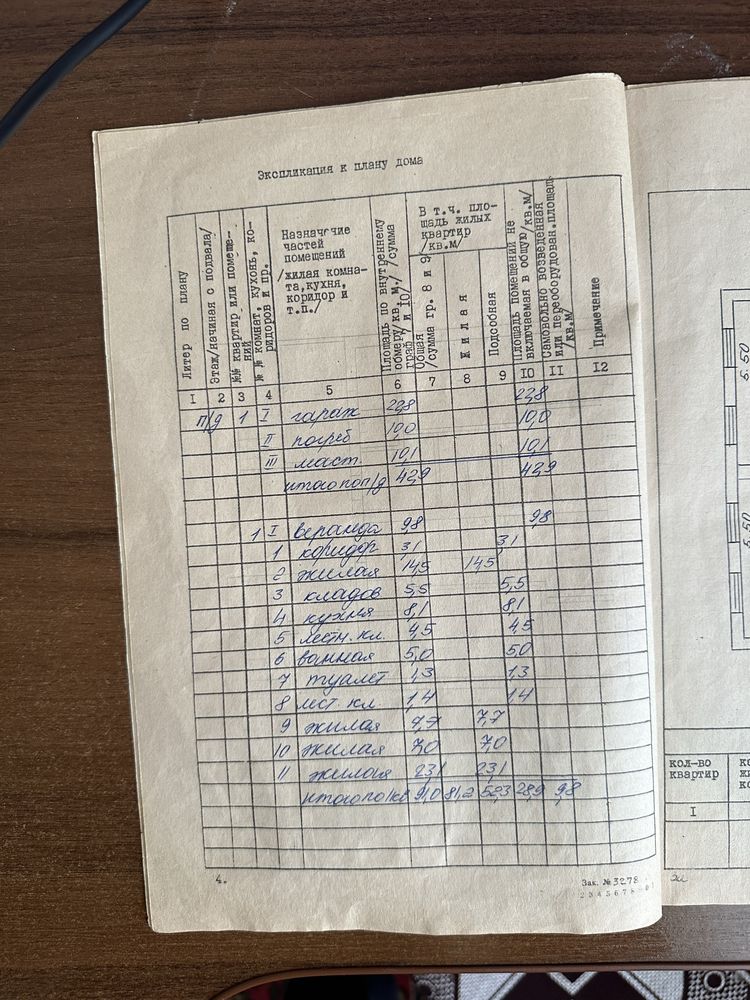 Экспликация к плану дома
Литер по плану
Этаж/начиная с подвала/
№№ квартир или помещений
№ № комнат, кухонь, коридоров и пр.
Назначение
частей
помещений
/жилая комна-
та,кухня,
коридор и
т.п./
Площадь по внутреннему
обмеру/кв.м./ /сумма
граф 7 и 10/
В т.ч. пло-
щадь жилых
квартир
/кв.м/
Общая
/сумма гр. 8 и 9/
Жилая
Подсобная
Площадь помещений не
включаемая в общую/кв.м/
Самовольно возведенная
или переоборудован.площадь
/кв.м/
Примечание
I 2 3 4 5 6 7 8 9 10 11 12
п/д 1 I гараж 22,8 22,8
II погреб 10,0 10,0
III маст. 10,1 10,1
итого по п/д 42,9 42,9
1 I веранда 9,8 9,8
1 коридор 3,1 3,1
2 жилая 14,5 14,5
3 кладов 5,5 5,5
4 кухня 8,1 8,1
5 лестн. кл. 4,5 4,5
6 ванная 5,0 5,0
7 туалет 1,3 1,3
8 лест. кл 1,4 1,4
9 жилая 7,7 7,7
10 жилая 7,0 7,0
11 жилая 23,1 23,1
итого по 1кв 91,0 81,2 52,3 28,9 9,8
4.
Зак. № 3278
5.50
5.50
кол-во
квартир
I